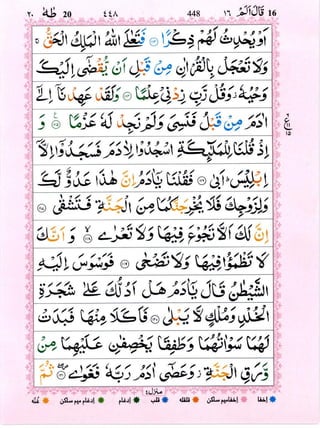 ٢٠ طٰهٰ 20 ٤٤٨ 448 ١٦ قَالَ اَلَمْ 16
اَوْ يُحْدِثُ لَهُمْ ذِكْرًا ۝ فَتَعٰلَى اللّٰهُ الْمَلِكُ الْحَقُّ ۚ
وَلَا تَعْجَلْ بِالْقُرْاٰنِ مِنْ قَبْلِ اَنْ يُّقْضٰٓى اِلَيْكَ
وَحْيُهٗ ؗ وَقُلْ رَّبِّ زِدْنِيْ عِلْمًا ۝ وَلَقَدْ عَهِدْنَآ اِلٰٓى
اٰدَمَ مِنْ قَبْلُ فَنَسِيَ وَلَمْ نَجِدْ لَهٗ عَزْمًا ۝ وَ
اِذْ قُلْنَا لِلْمَلٰٓئِكَةِ اسْجُدُوْا لِاٰدَمَ فَسَجَدُوْٓا اِلَّآ
اِبْلِيْسَ ؕ اَبٰى ۝ فَقُلْنَا يٰٓاٰدَمُ اِنَّ هٰذَا عَدُوٌّ لَّكَ
وَلِزَوْجِكَ فَلَا يُخْرِجَنَّكُمَا مِنَ الْجَنَّةِ فَتَشْقٰى ۝
اِنَّ لَكَ اَلَّا تَجُوْعَ فِيْهَا وَلَا تَعْرٰى ۝ وَاَنَّكَ
لَا تَظْمَؤُا فِيْهَا وَلَا تَضْحٰى ۝ فَوَسْوَسَ اِلَيْهِ
الشَّيْطٰنُ قَالَ يٰٓاٰدَمُ هَلْ اَدُلُّكَ عَلٰى شَجَرَةِ
الْخُلْدِ وَمُلْكٍ لَّا يَبْلٰى ۝ فَاَكَلَا مِنْهَا فَبَدَتْ
لَهُمَا سَوْاٰتُهُمَا وَطَفِقَا يَخْصِفٰنِ عَلَيْهِمَا مِنْ
وَّرَقِ الْجَنَّةِ ؗ وَعَصٰٓى اٰدَمُ رَبَّهٗ فَغَوٰى ۝ ثُمَّ
منزل٤
اخفا اخفامیم ساکن قلقله قلب ادغام ادغام میم ساکن غنه